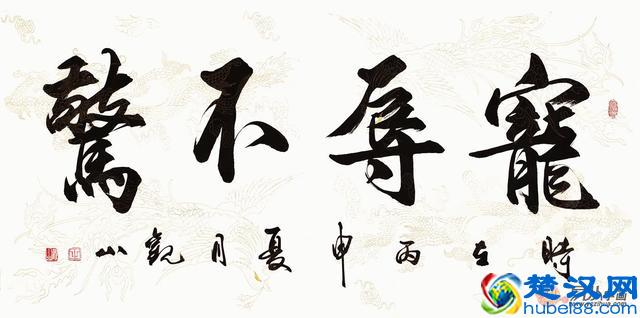 寵辱不驚
時在丙申夏月觀山
楚汉网
hubei88.com